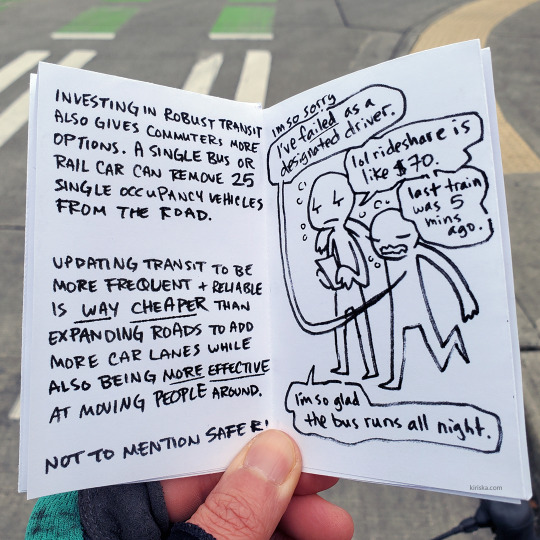 INVESTING IN ROBUST TRANSIT
ALSO GIVES COMMUTERS MORE
OPTIONS. A SINGLE BUS OR
RAIL CAR CAN REMOVE 25
SINGLE OCCUPANCY VEHICLES
FROM THE ROAD.
UPDATING TRANSIT TO BE
MORE FREQUENT + RELIABLE
IS WAY CHEAPER THAN
EXPANDING ROADS TO ADD
MORE CAR LANES WHILE
ALSO BEING MORE EFFECTIVE
AT MOVING PEOPLE AROUND.
NOT TO MENTION SAFER!
i'm so sorry
I've failed as a
designated driver.
lol rideshare is
like $70.
last train
was 5
mins
ago.
I'm so glad
the bus runs all night.
kiriska.com